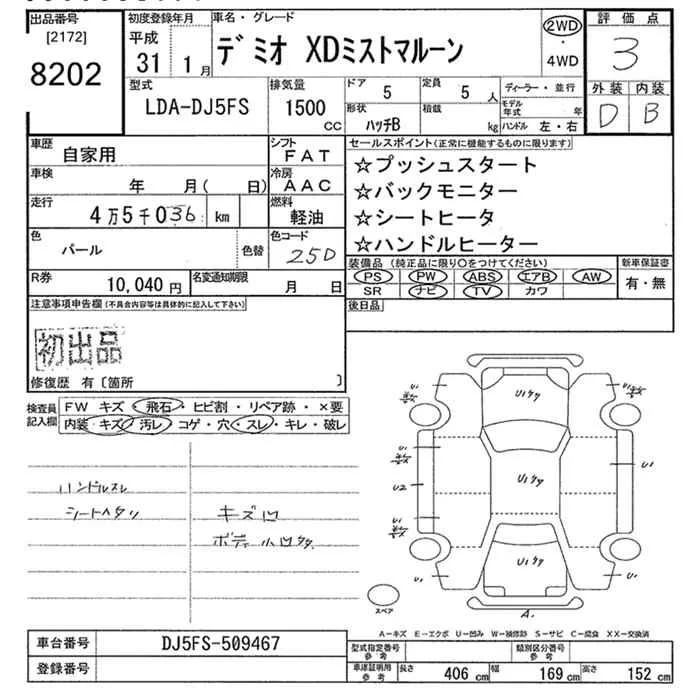 出品番号
[2172]
8202
初度登録年月
平成
31 1月
車名・グレード
デミオ XDミストマルーン
2WD
4WD
評価点
3
外装 内装
D B
型式
LDA-DJ5FS
排気量
1500
CC
ドア
5
定員
5 人
形状
ハッチB
積載
kg
ディーラー・並行
モデル年式 年
ハンドル 左・右
車歴
自家用
シフト
FAT
車検
年 月( 日)
冷房
AAC
走行
4万5千036 km
燃料
軽油
色
パール
色替
色コード
25D
R券
10,040円
名変通知期限
月 日
セールスポイント(正常に機能するものに限ります)
☆プッシュスタート
☆バックモニター
☆シートヒータ
☆ハンドルヒーター
装備品 (純正品に限り○をつけてください)
PS PW ABS エアB AW
SR ナビ TV カワ
新車保証書
有・無
後日品
注意事項申告欄(不具合内容等は具体的に記入して下さい)
初出品
修復歴 有〔箇所 〕
検査員記入欄
FW キズ・飛石・ヒビ割・リペア跡・×要
内装・キズ・汚レ・コゲ・穴・スレ・キレ・破レ
ハンドルスレ
シートヘタリ
キズ凹
ボディ小凹
U1
U2
A
スペア
A-キズ E-エクボ U-凹み W-補修跡 S-サビ C-腐食 XX-交換済
車台番号
DJ5FS-509467
登録番号
型式指定番号
参考
類別区分番号
参考
車庫証明用
参考
長さ 406 cm
幅 169 cm
高さ 152 cm